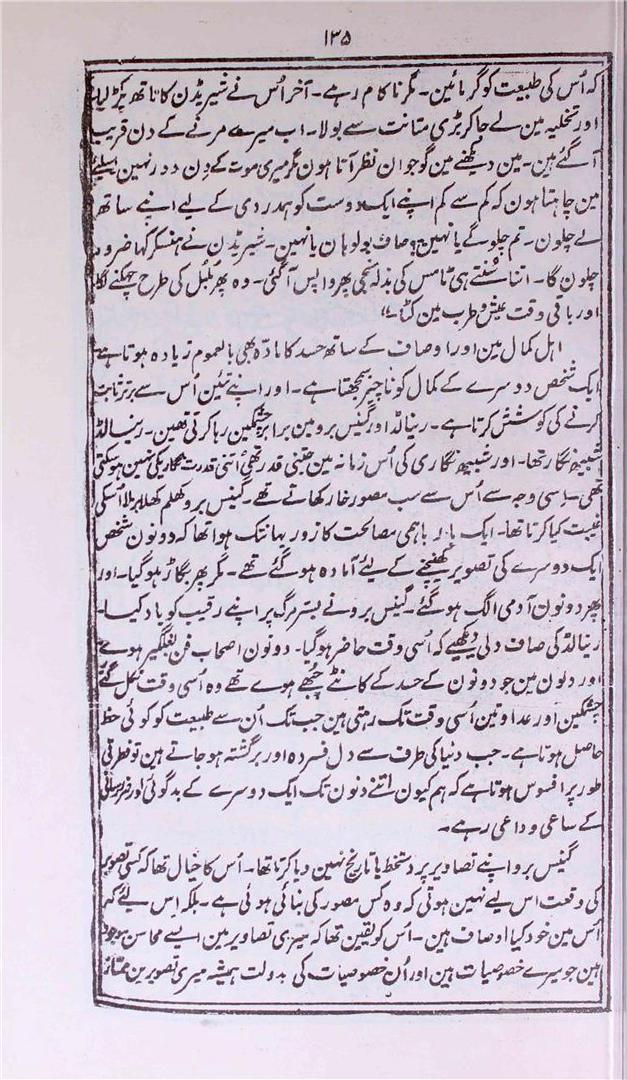 ۱۳۵
کہ اُس کی طبیعت کو گرمائین۔ مگر ناکام رہے۔ آخر اُس نے شیریڈن کا ہاتھ پکڑ لیا
اور تخلیہ مین لے جاکر بڑی متانت سے بولا۔ اب میرے مرنے کے دن قریب
آگئے ہین۔ مین دیکھنے مین گو جوان نظر آتا ہون مگر میری موت کے دن دور نہین اسلئے
مین چاہتا ہون کہ کم سے کم اپنے ایک دوست کو ہمدردی کے لیے اپنے ساتھ
لے چلون۔ تم چلوگے یا نہین؟ صاف بولو ہان یا نہین۔ شیریڈن نے ہنسکر کہا ضرور
چلون گا۔ اتنا سنتے ہی ٹامس کی بذلہ سنجی پھر واپس آگئی۔ وہ پھر بلبل کی طرح چہکنے لگا
اور باقی وقت عیش و طرب مین کٹا۔"
اہل کمال مین اور اوصاف کے ساتھ حسد کا مادّہ بھی بالعموم زیادہ ہوتا ہے
ایک شخص دوسرے کے کمال کو ناچیز سمجھتا ہے۔ اور اپنے تئین اُس سے برتر ثابت
کرنے کی کوشش کرتا ہے۔ رینالڈ اور گینس برو مین برابر چشمکین رہا کرتی تھین۔ رینالڈ
شبیہ نگار تھا۔ اور شبیہ نگاری کی اُس زمانہ مین جتنی قدر تھی اُتنی قدرت نگاری کی نہین ہوسکتی
تھی۔ اسی وجہ سے اُس سے سب مصور خار کھاتے تھے۔ گینس برو کھلم کھلا برملا اُسکی
غیبت کیا کرتا تھا۔ ایک بار باہمی مصالحت کا زور یہانتک ہوا تھا کہ دونون شخص
ایک دوسرے کی تصویر کھینچنے کے لیئے آمادہ ہوگئے تھے۔ مگر پھر بگاڑ ہوگیا۔ اور
پھر دونون آدمی الگ ہوگئے۔ گینس برو نے بستر مرگ پر اپنے رقیب کو یاد کیا۔
رینالڈ کی صاف دلی دیکھیے کہ اُسی وقت حاضر ہوگیا۔ دونون اصحاب فن بغلگیر ہوے
اور دلون مین جو دونون کے حسد کے کانٹے چُبھے ہوے تھے وہ اُسی وقت نکل گئے
چشمکین اور عداوتین اُسی وقت تک رہتی ہین جب تک اُن سے طبیعت کو کوئی حظ
حاصل ہوتا ہے۔ جب دنیا کی طرف سے دل فسردہ اور برگشتہ ہوجاتے ہین تو فطرتی
طور پر افسوس ہوتا ہے کہ ہم کیون اتنے دنون تک ایک دوسرے کے بدگوئی اور ضرر رسانی
کے ساعی و داعی رہے۔
گینس برو اپنے تصاویر پر دستخط یا تاریخ نہین دیا کرتا تھا۔ اُس کا خیال تھا کہ کسی تصویر
کی وقعت اس لیے نہین ہوتی کہ وہ کس مصور کی بنائی ہوئی ہے۔ بلکہ اِس لیئے کہ
اُس مین خود کیا اوصاف ہین۔ اُس کو یقین تھا کہ میری تصاویر مین ایسے محاسن موجود
ہین جو میرے خصوصیات ہین اور اُن خصوصیات کی بدولت ہمیشہ میری تصویرین ممتاز